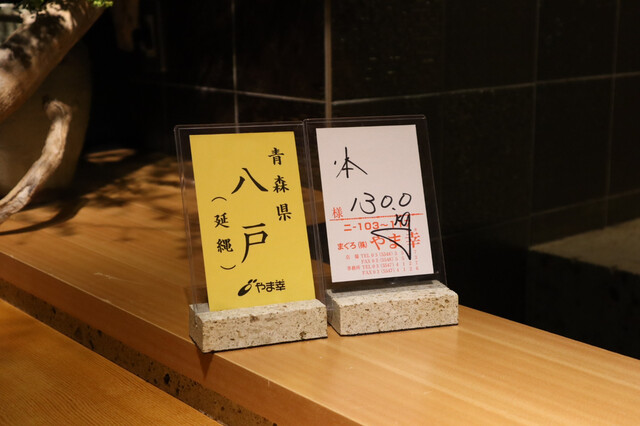 青森県
八戸
（延縄）
やま幸
本
130.0
kg
様
ニ-103~
まぐろ（株）やま幸